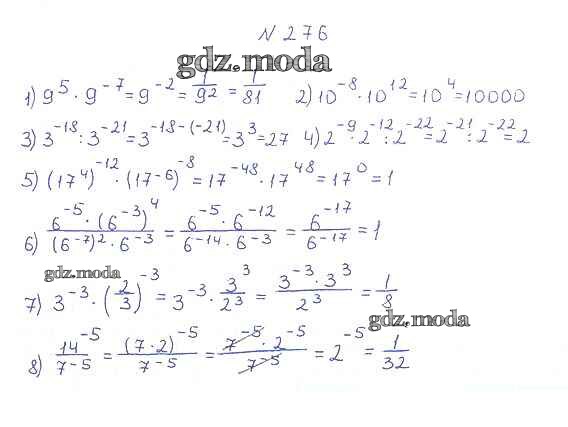 N 276
gdz.moda
1) 9^5 · 9^-7 = 9^-2 = 1/9^2 = 1/81 2) 10^-8 · 10^12 = 10^4 = 10000
3) 3^-18 : 3^-21 = 3^-18-(-21) = 3^3 = 27 4) 2^-9 · 2^-12 : 2^-22 = 2^-21 : 2^-22 = 2
5) (17^4)^-12 · (17^-6)^-8 = 17^-48 · 17^48 = 17^0 = 1
6) 6^-5 · (6^-3)^4 / (6^-7)^2 · 6^-3 = 6^-5 · 6^-12 / 6^-14 · 6^-3 = 6^-17 / 6^-17 = 1
gdz.moda
7) 3^-3 · (2/3)^-3 = 3^-3 · 3^3/2^3 = 3^-3 · 3^3 / 2^3 = 1/8
gdz.moda
8) 14^-5 / 7^-5 = (7·2)^-5 / 7^-5 = 7^-5 · 2^-5 / 7^-5 = 2^-5 = 1/32